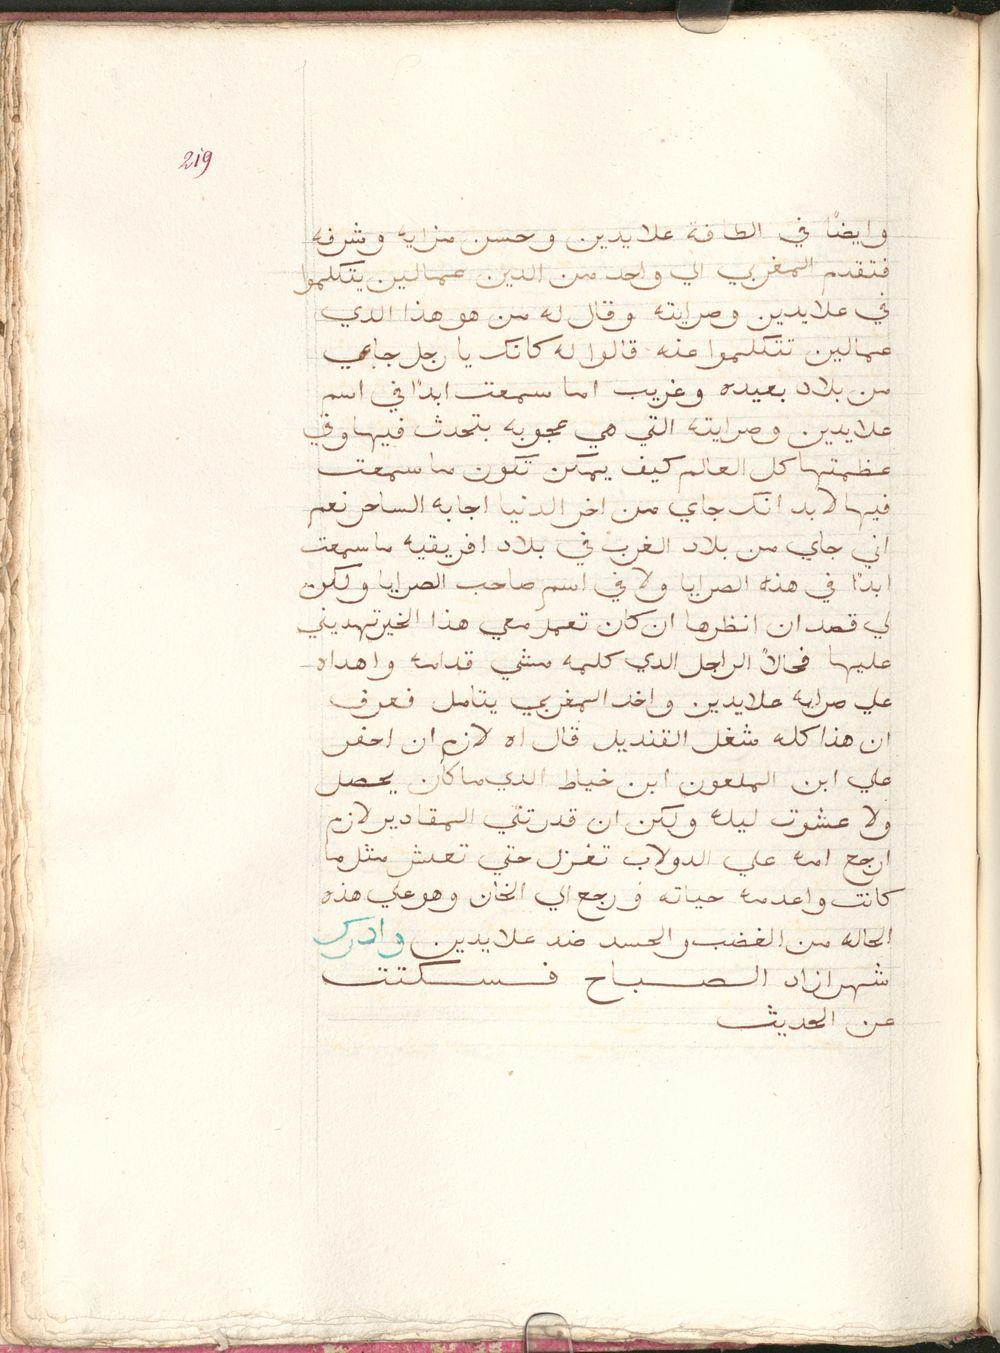 219
وايضًا في الطافة علايدين وحسن مزايه وشرفه
فتقدم المغربي الي واحد من الدين عمالين يتكلموا
في علايدين وصرايته وقال له من هو هذا الدي
عمالين تتكلموا عنه قالوا له كانك يا رجل جاي
من بلاد بعيده وغريب اما سمعت ابدًا في اسم
علايدين وصرايته التي هي عجوبه بتحدث فيها وفي
عظمتها كل العالم كيف يمكن تكون ما سمعت
فيها لابد انك جاي من اخر الدنيا اجابه الساحر نعم
اني جاي من بلاد الغرب في بلاد افريقيه ما سمعت
ابدًا في هذه الصرايا ولا في اسم صاحب الصرايا ولكن
لي قصد ان انظرها ان كان تعمل معي هذا الخير تهديني
عليها فحالاً الراجل الدي كلمه مشي قدامه واهداه
علي صراية علايدين واخد المغربي يتامل فعرف
ان هذا كله شغل القنديل قال اه لازم ان احفر
علي ابن الملعون ابن خياط الدي ما كان يحصل
ولا عشوت ليله ولكن ان قدرتني المقادير لازم
ارجع امه علي الدولاب تغزل حتي تعيش مثل ما
كانت واعدمه حياته ورجع الي الخان وهو علي هذه
الحاله من الغضب والحسد ضد علايدين وادرك
شهرازاد الصباح فسكتت
عن الحديث